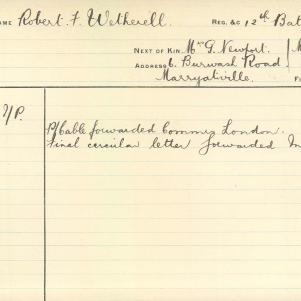 AME Robert. F. Wetherell. REG. &C 12th Bat
NEXT OF KIN Mrs G. Newport.
ADDRESS 6. Burwash Road
Marryatville.
P/Cable forwarded Commrs London.
Final circular letter forwarded